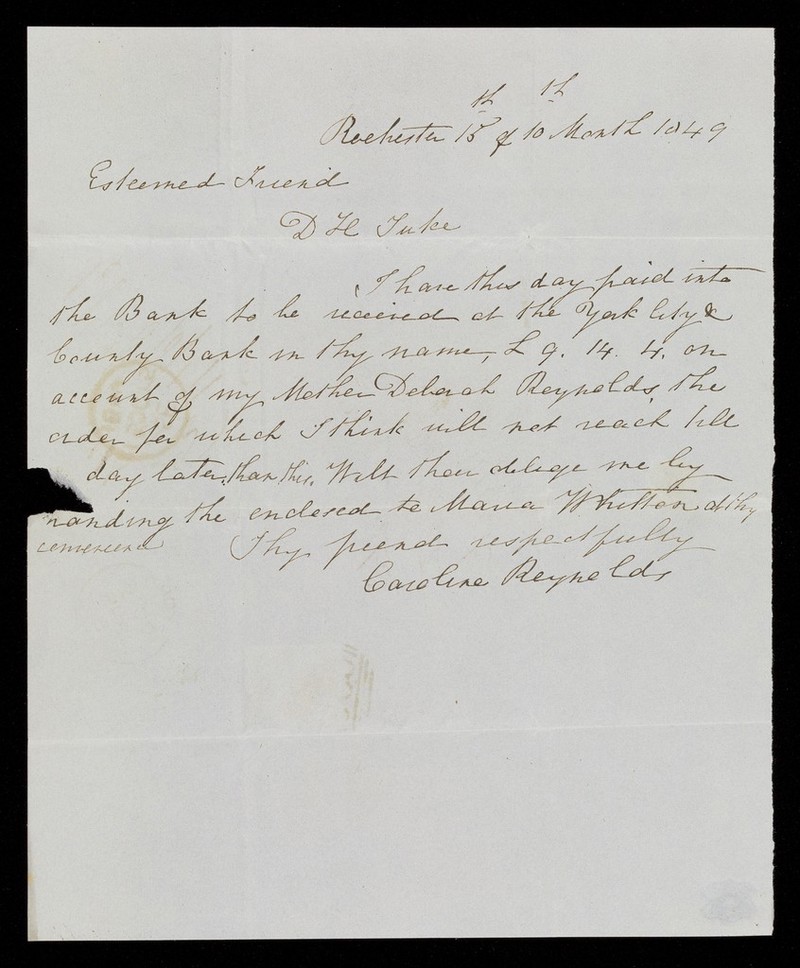 Rochester 15th of 10th Month 1849
Esteemed Friend
D H Tuke
I have this day paid into
the Bank to be received at the York City &
County Bank in thy name, £ 9. 14. 4. on
account of my Mother Deborah Reynolds, the
order for which I think will not reach till
day later than this. Wilt thou oblige me by
handing the enclosed to Maria Whitton at thy
convenience Thy friend respectfully
Caroline Reynolds